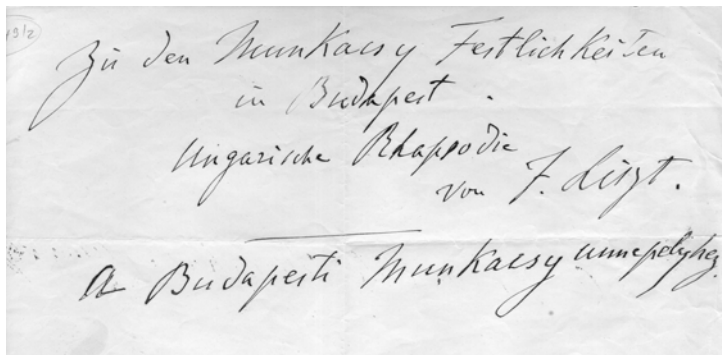 19/2
Zu den Munkacsy Festlichkeiten
in Budapest.
Ungarische Rhapsodie
von F. Liszt.
a Budapesti Munkacsy unnepelyhez